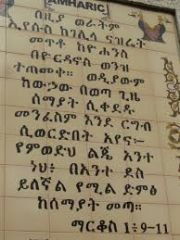 AMHARIC
በዚያ ወራትም
ኢየሱስ ከገሊላ ናዝሬት
መጥቶ ከዮሐንስ
በዮርዳኖስ ወንዝ
ተጠመቀ። ወዲያውም
ከውኃው በወጣ ጊዜ
ሰማያት ሲቀደዱ
መንፈስም እንደ ርግብ
ሲወርድበት አየና፦
የምወድህ ልጄ አንተ
ነህ፥ በአንተ ደስ
ይለኛል የሚል ድምፅ
ከሰማያት መጣ።
ማርቆስ 1፡ 9-11